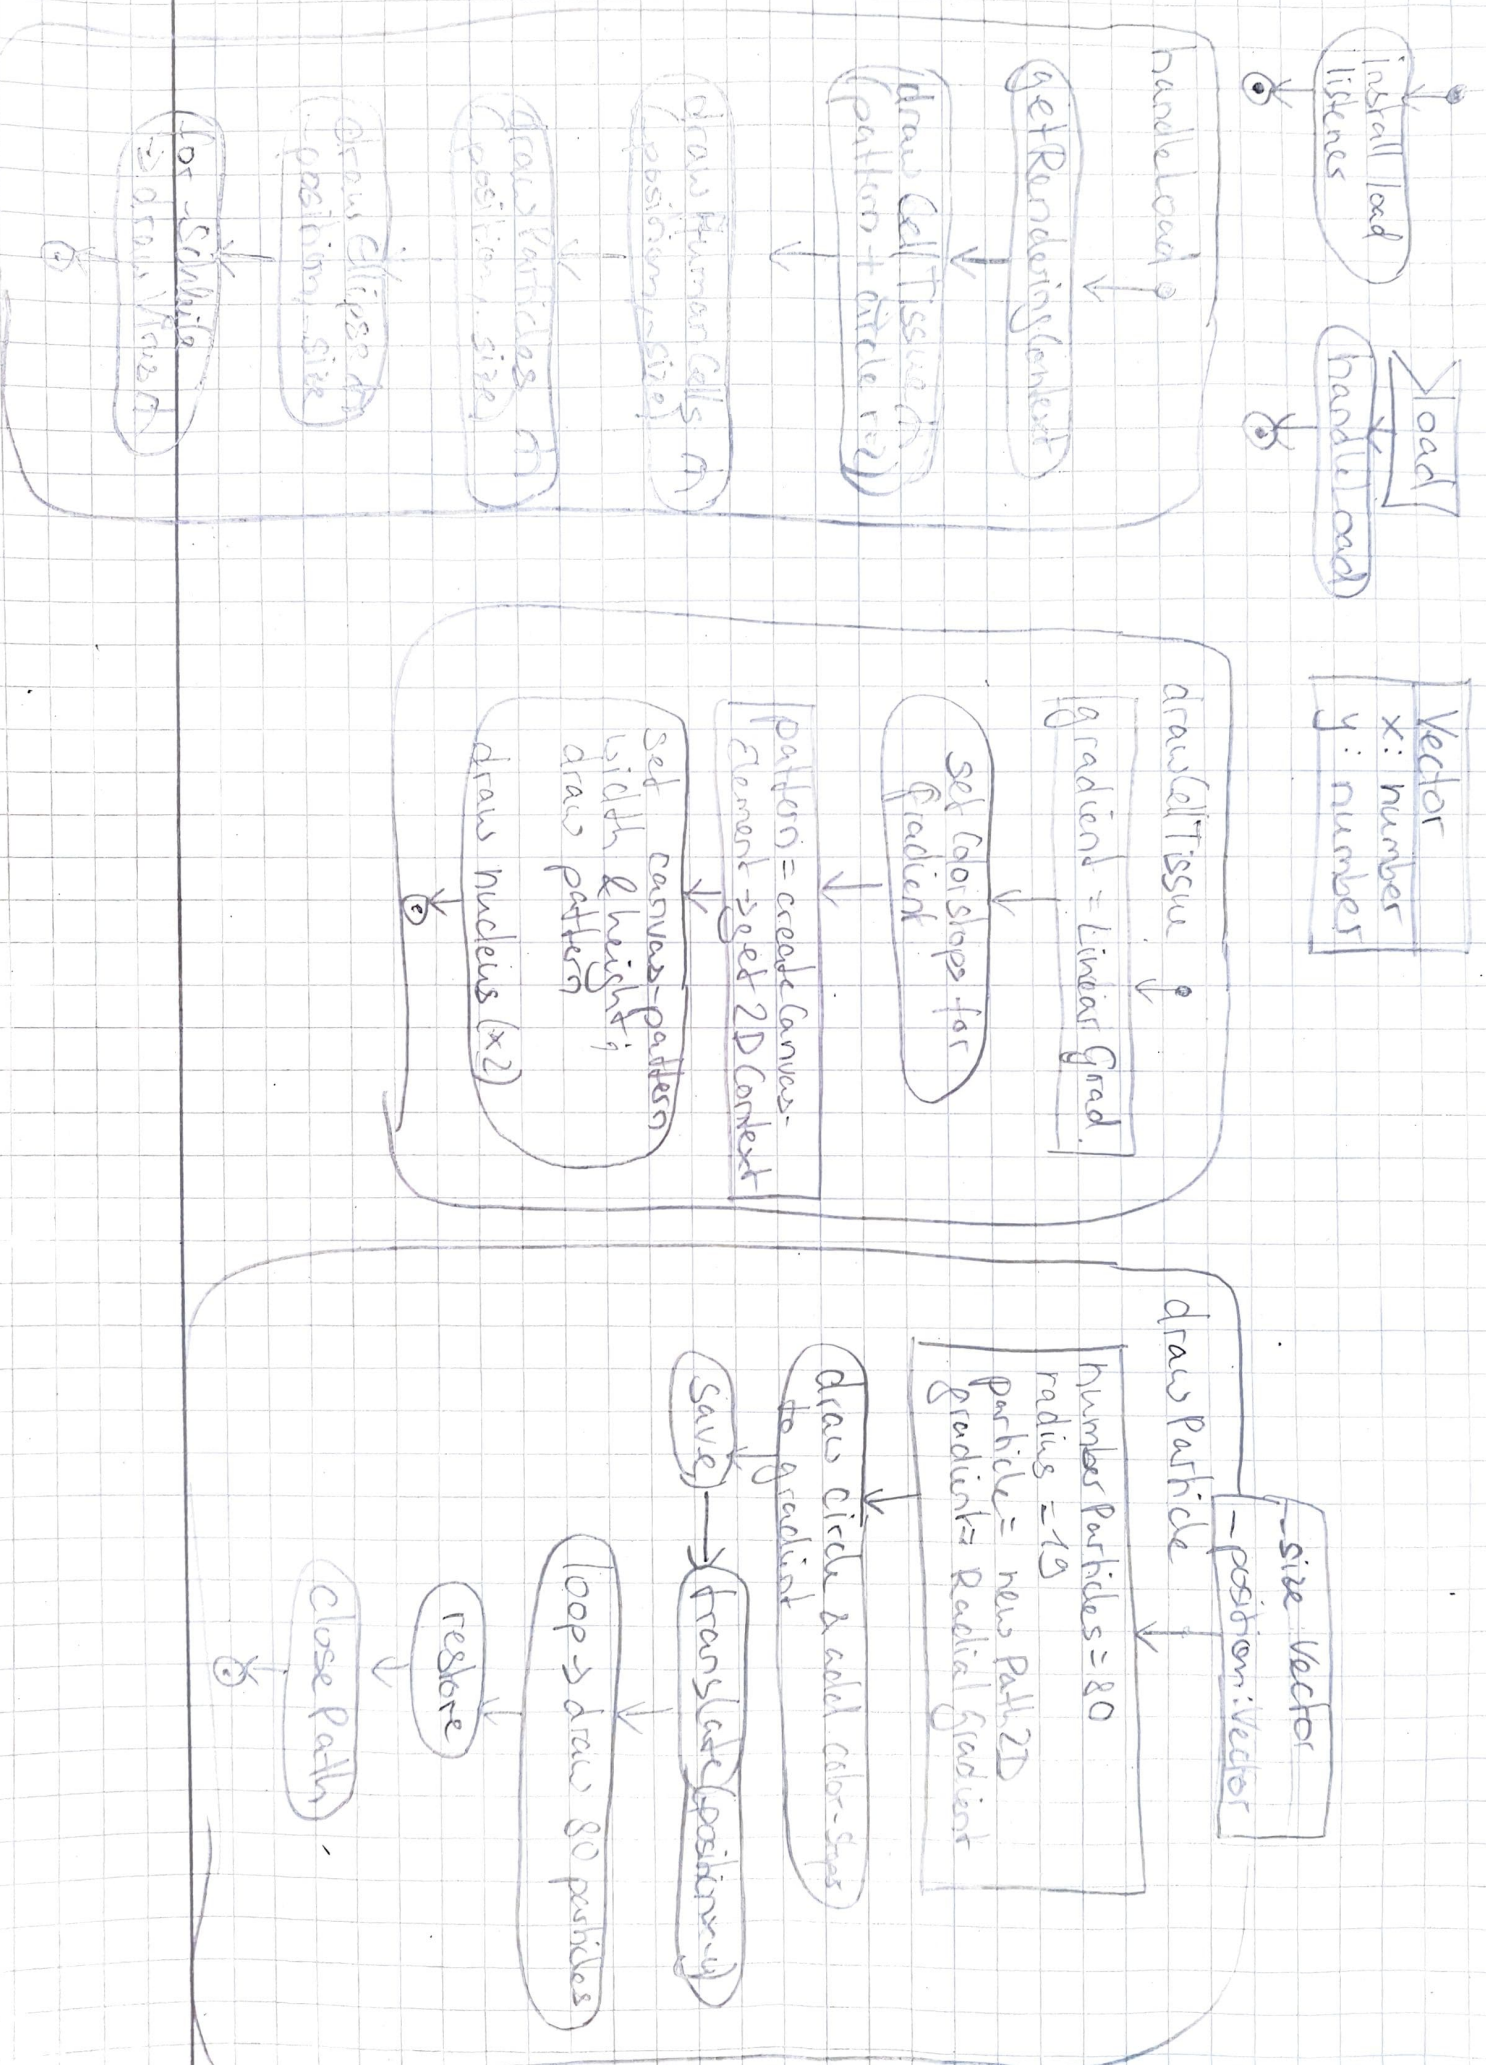 install load
listenes
load
handleload
Vector
x: number
y: number
handleLoad
getRenderingContext
drawCellTissue
(pattern + circle (x2)
drawHumanCells
(_position, _size)
drawParticles
(_position, _size)
drawEllipse
_position, _size
for-Schleife
-> draw Virus
drawCellTissue
gradient = LinearGrad.
set Colorstops for
Gradient
pattern = createCanvas-
Element -> get 2D Context
set canvas-pattern
width & height;
draw pattern
draw nucleus (x2)
-size: Vector
-position: Vector
drawParticle
numberParticles = 80
radius = 19
particle = new Path2D
gradient = RadialGradient
draw circle & add color-Stops
to gradient
save
translate(position x-y)
loop -> draw 80 particles
restore
closePath